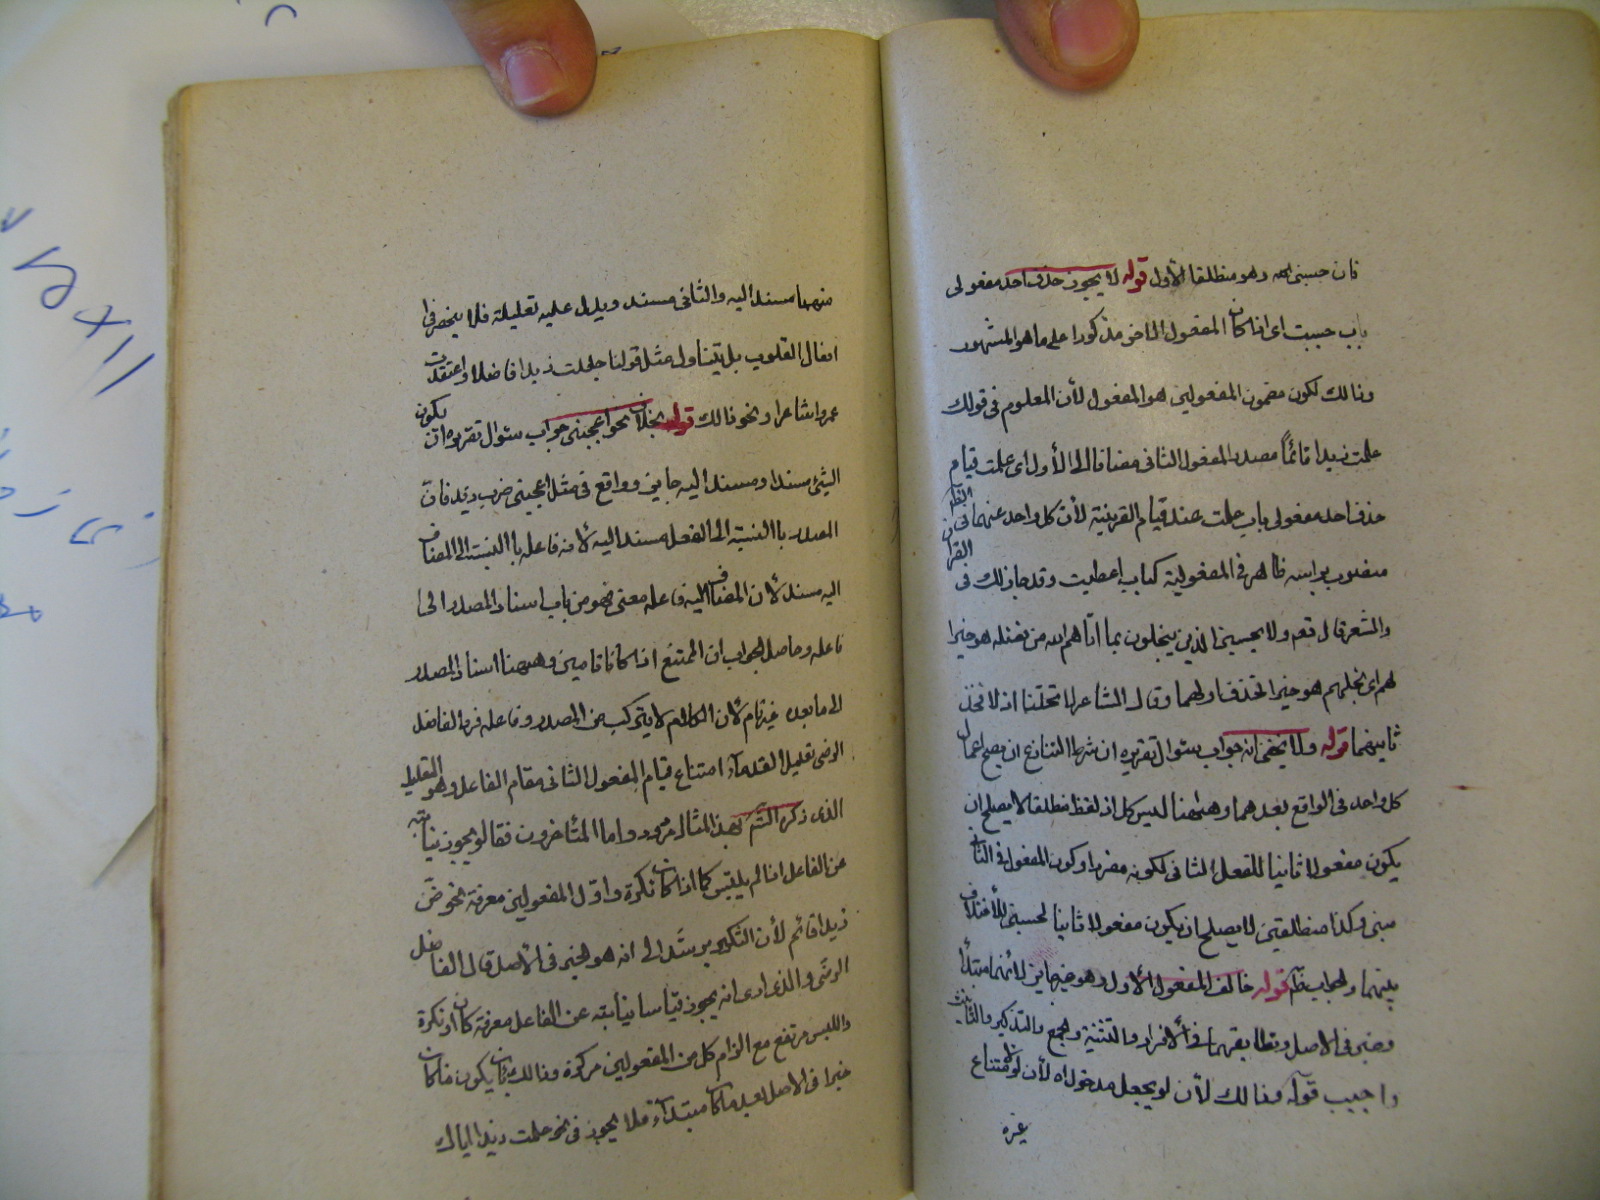 فان حسبنى اهـ وهو منطلقا الأول قوله لا يجوز حذف احد مفعولى
باب حسبت اى اذا كان المفعول الاخر مذكورا على ما هو المشهور
وذالك لكون مضمون المفعولين هو المفعول لأن المعلوم فى قولك
علمت زيدا قائماً مصدر المفعول الثانى مضافا الى الأول اى علمت قيام
حذف احد مفعولى باب علمت عند قيام القرينة لأن كل واحد عنهما فى
منصوب براسه ظاهر فى المفعولية كباب اعطيت وقد جاز ذلك فى القرآن
والشعر قال تعم ولا يحسبن الذين يبخلون بما اتاهم الله من فضله هو خيرا
لهم اى بخلهم هو خيرا فحذف اولهما وقال الشاعر لا تخلنا اذ لا فحذف
ثانيهما قوله ولا يخفى انه جواب سئوال تقريره ان شرط التنازع ان يصح اعمال
كل واحد فى الواقع بعدهما وههنا ليس كل اذ لفظ منطلقا لا يصلح ان
يكون مفعولا ثانيا للفعل الثانى لكونه مفردا وكون المفعول فى الثانى
مبنى وكذا منطلقين لا يصلح ان يكون مفعولا ثانيا لحسبنى للأختلاف
بينهما والجواب ظ قوله خالف المفعول الأول وهو غير جايز لأنهما مبتدأ
وخبر فى الاصل وتطابقهما فى الأفراد والتثنية والجمع والتذكير والتانيث
واجيب قوله وذالك لأن لو يجعل مدخولاه لأن لو لامتناع
غيره
منهما مسند اليه والثانى مسند ويدل عليه تعليله فلا ينحصر فى
افعال القلوب بل يتناول مثل قولنا جعلت زيدا فاضلا واعتقدت
عمروا شاعرا ونحو ذالك قوله بخلاف نحو اعجبنى جواب سئوال تقريره ان يكون
الشئ مسندا ومسندا اليه جايز وواقع فى مثل اعجبنى ضرب زيد فان
المصدر باالنسبة الى الفعل مسند اليه لأنه فاعله باالنسبة الى المضاف
اليه مسند لأن المضاف اليه فاعله معنى فهو من باب اسناد المصدر الى
فاعله وحاصل الجواب ان الممتنع اذا كانا تامين وههنا اسناد المصدر
الى ما بعده غير تام لأن الكلام لا يتركب من المصدر وفاعله فرد الفاضل
الرضى تعليل القدماء امتناع قيام المفعول الثانى مقام الفاعل وهو التعليل
الذى ذكره الش بهذا المثال مردود واما المتأخرون فقالو يجوز نيابته
عن الفاعل اذا لم يلتبس كما اذا كان نكرة واول المفعولين معرفة نحو ظن
زيدا قائم لأن التنكير يرشد الى انه هو الخبر فى الأصل قال الفاضل
الرضى والذى ارى انه يجوز قياسا نيابته عن الفاعل معرفة كان او نكرة
واللبس مرتفع مع الزام كل من المفعولين مركزه وذالك بان يكون ما كان
خبرا فى الاصل بعد ما كان مبتدأ فلا يجوز فى نحو علمت زيدا اباك